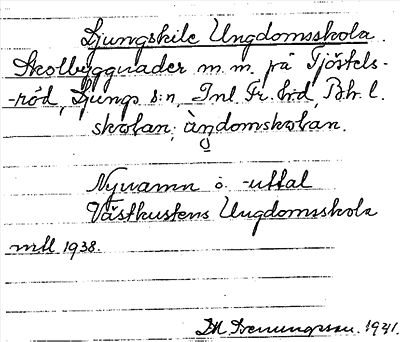 Ljungskile Ungdomsskola.
Skolbyggnader m.m. på Tjöstels-
-röd, Ljungs s:n, Inl. Fr. hd, Boh. l.
skolan; ùngdomskolan.
Nynamn o. -uttal
Västkustens Ungdomsskola
1938.
1941.